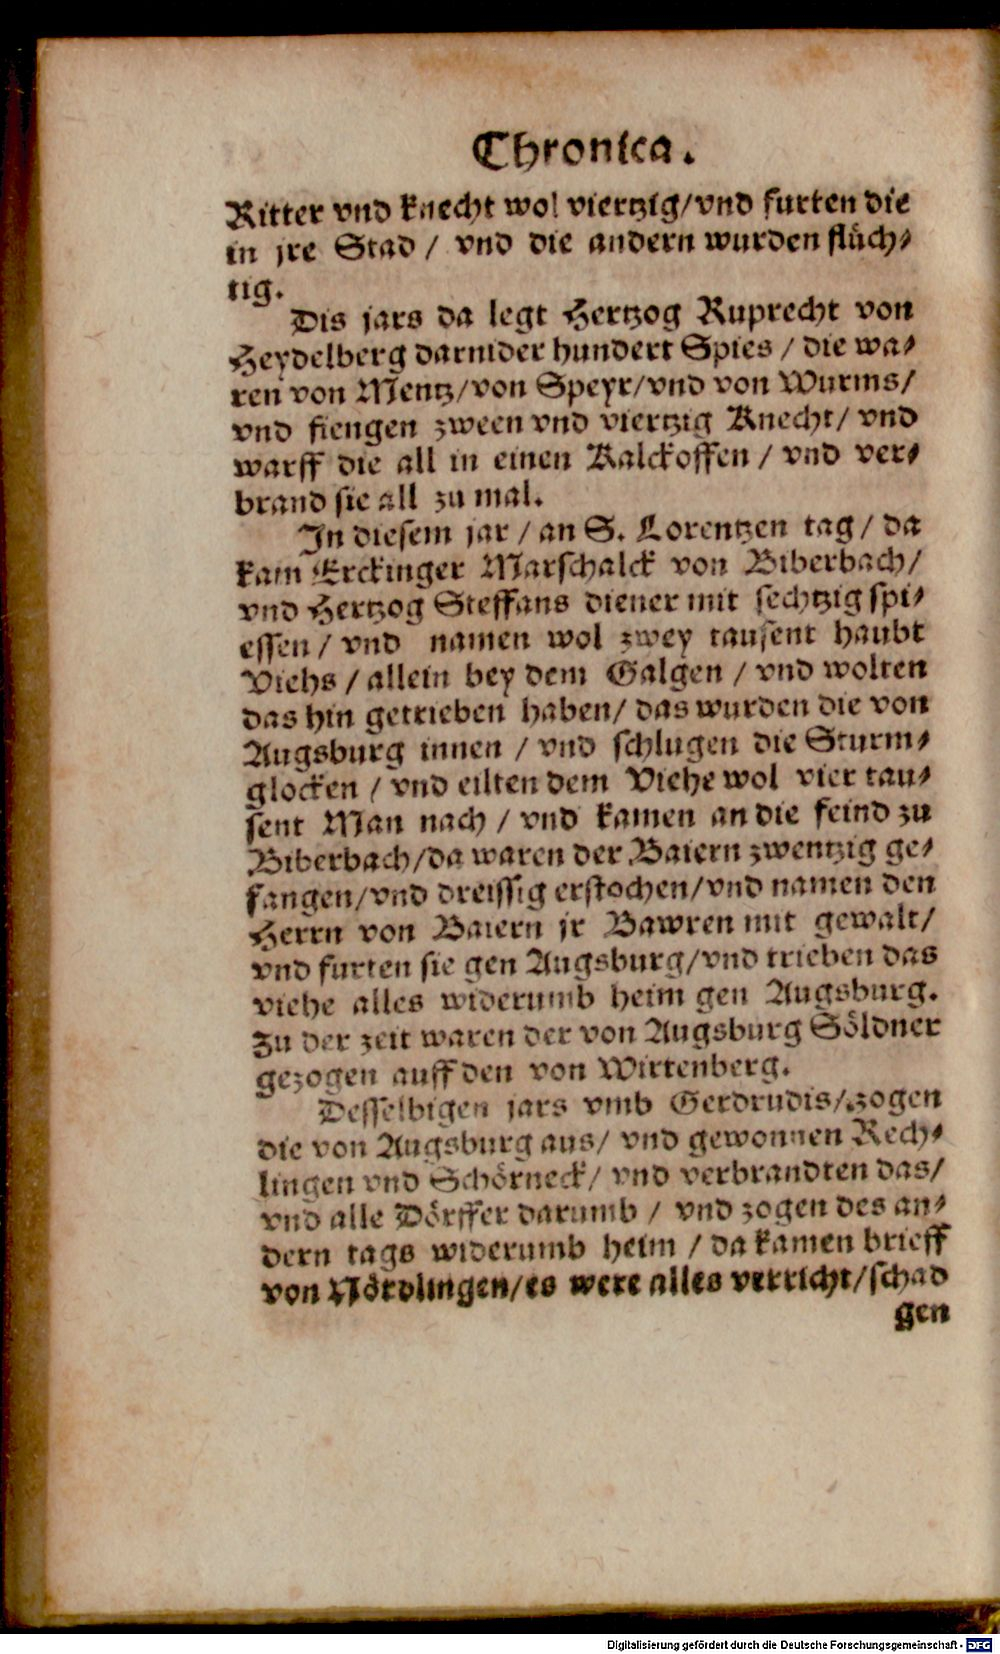 Chronica.
Ritter vnd knecht wol viertzig/vnd furten die
in jre Stad / vnd die andern wurden flüch-
tig.
Dis jars da legt Hertzog Ruprecht von
Heydelberg darnider hundert Spies / die wa-
ren von Mentz/von Speyr/vnd von Wurms/
vnd fiengen zween vnd viertzig Knecht/ vnd
warff die all in einen Kalckoffen / vnd ver-
brand sie all zu mal.
In diesem jar / an S. Lorentzen tag/ da
kam Erckinger Marschalck von Biberbach/
vnd Hertzog Steffans diener mit sechtzig spi-
essen / vnd namen wol zwey tausent haubt
Viehs / allein bey dem Galgen / vnd wolten
das hin getrieben haben/ das wurden die von
Augsburg innen / vnd schlugen die Sturm-
glocken / vnd eilten dem Viehe wol vier tau-
sent Man nach / vnd kamen an die feind zu
Biberbach/da waren der Baiern zwentzig ge-
fangen/vnd dreissig erstochen/vnd namen den
Herrn von Baiern jr Bawren mit gewalt/
vnd furten sie gen Augsburg/vnd trieben das
viehe alles widerumb heim gen Augsburg.
Zu der zeit waren der von Augsburg Söldner
gezogen auff den von Wirtenberg.
Desselbigen jars vmb Gerdrudis/zogen
die von Augsburg aus/ vnd gewonnen Rech-
lingen vnd Schörneck/ vnd verbrandten das/
vnd alle Dörffer darumb / vnd zogen des an-
dern tags widerumb heim / da kamen brieff
von Nördlingen/es were alles verricht/schad
gen
Digitalisierung gefördert durch die Deutsche Forschungsgemeinschaft - DFG